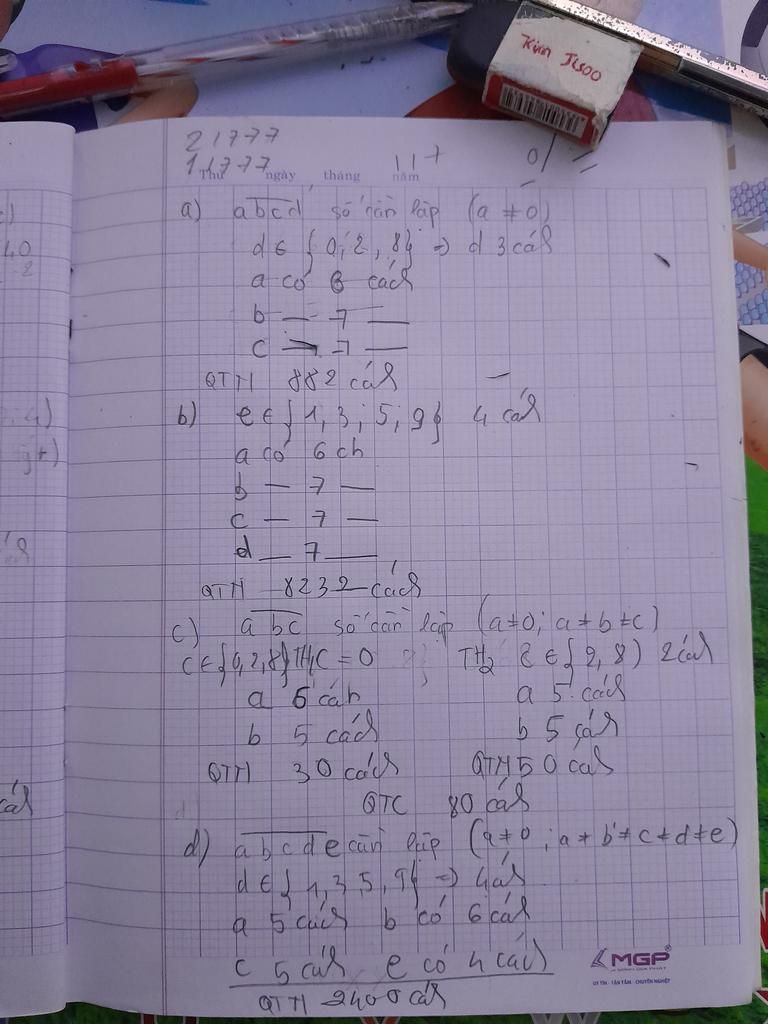 Kim Jisoo
21777
11777
117
Thứ ngày tháng năm
0/
a) abcd số cần lập (a ≠ 0)
d ∈ { 0; 2, 8} => d 3 cách
a có 6 cách
b — 7 —
c — 7 —
QTN 882 cách
b) e ∈ { 1, 3; 5; 9} 4 cách
a có 6 ch
b — 7 —
c — 7 —
d — 7 —
QTN 8232 cách
c) abc số cần lập (a≠0; a≠b≠c)
c ∈ {0,2,8} TH1 C = 0 TH2 c ∈ { 2, 8) 2 cách
a 6 cách a 5 cách
b 5 cách b 5 cách
QTN 30 cách QTN 50 cách
QTC 80 cách
d) abcde cần lập (a≠0; a≠b≠c≠d≠e)
d ∈ { 1, 3 5, 9} => 4 cách
a 5 cách b có 6 cách
c 5 cách e có 4 cách
QTN 2400 cách
MGP
UY TÍN - TẬN TÂM - CHUYÊN NGHIỆP